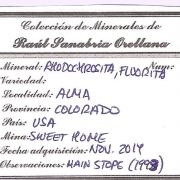 Colección de Minerales de
Raúl Sanabria Orellana
Mineral: RHODOCHROSITA, FLUORITA Num:
Variedad:
Localidad: ALMA
Provincia: COLORADO
País: USA
Mina: SWEET HOME
Fecha adquisición: NOV. 2014
Observaciones: MAIN STOPE (1998)